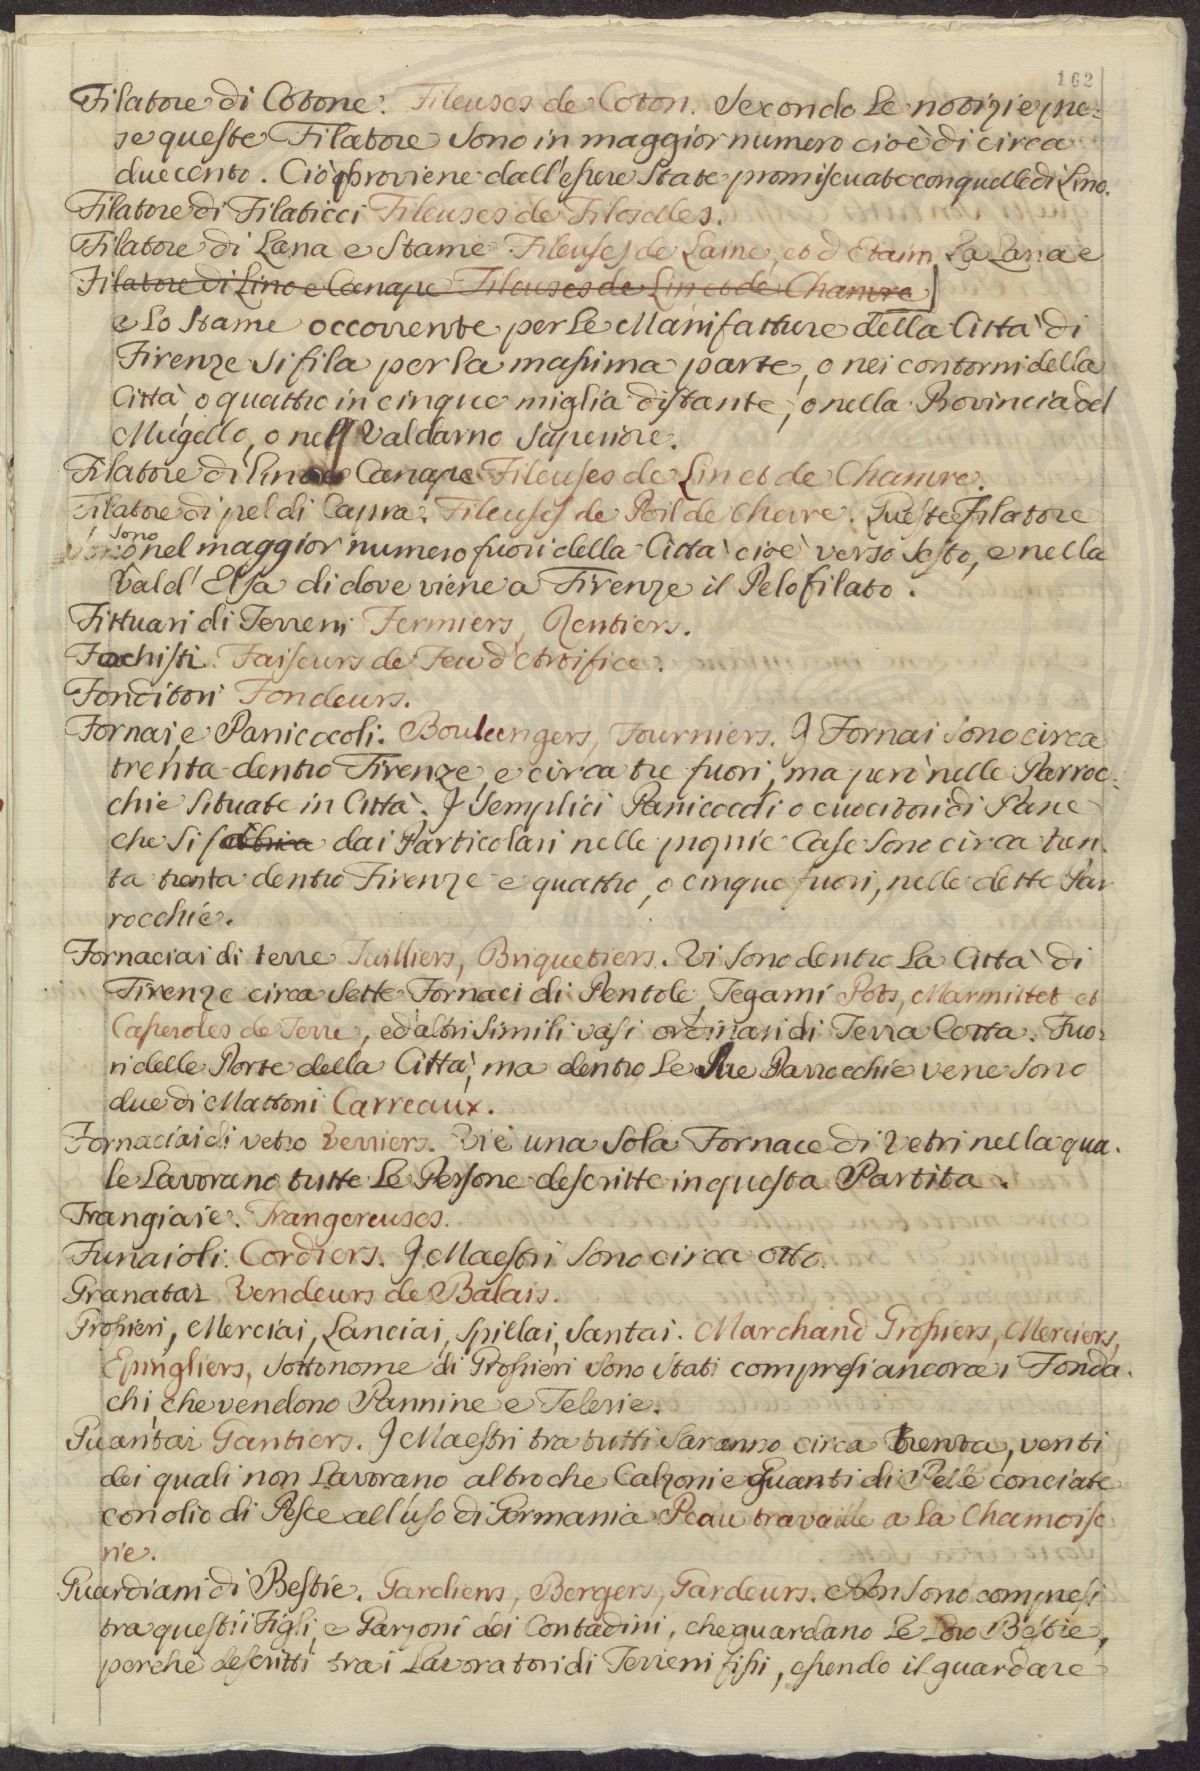 162
Filatore di Cotone. Fileuses de Coton. Secondo le notizie pre=
se queste Filatore sono in maggior numero cioè di circa
duecento. Ciò proviene dall'essere State promiscuate con quelle di Lino.
Filatore di Filaticci Fileuses de Filoselles.
Filatore di Lana e Stame Fileuses de Laine, et d'Etaim La Lana e
Filatore di Lino e Canape Fileuses de Lin et de Chanvre
e lo Stame occorrente per le Manifatture della Città di
Firenze si fila per la massima parte, o nei contorni della
Città, o quattro in cinque miglia distante, o nella Provincia del
Mugello, o nel Valdarno Superiore.
Filatore di lino e Canape Fileuses de Lin et de Chanvre.
Filatore di pel di Capra. Fileuses de Poil de Chevre. Queste Filatore
sono
sono nel maggior numero fuori della Città cioè verso Sesto, e nella
Vald'Elsa di dove viene a Firenze il Pelo filato.
Fittuari di Terreni Fermiers, Rentiers.
Fochisti. Faiseurs de Feu d'Artifice.
Fonditori Fondeurs.
Fornai, e Panicocoli. Boulengers, Fourniers. I Fornai sono circa
trenta dentro Firenze, e circa tre fuori, ma però nelle Parroc=
chie situate in Città. I Semplici Panicocoli o cuocitori di Pane
che si fabbrica dai Particolari nelle proprie Case sono circa tren.
ta trenta dentro Firenze e quattro, o cinque fuori, nelle dette Par
rocchie.
Fornaciai di terre Tuilliers, Briquetiers. Vi sono dentro la Città di
Firenze circa Sette Fornaci di Pentole, Tegami Pots, Marmittet et
Casseroles de Terre, ed altri simili vasi ordinari di Terra Cotta. Fuo=
ri delle Porte della Città, ma dentro le Parrocchie vene sono
due di Mattoni Carreaux.
Fornaciai di vetro Verriers. Vi è una sola Fornace di Vetri nella qua.
le Lavorano tutte le Persone descritte in questa Partita.
Frangiaie. Frangereuses.
Funaioli. Cordiers. I Maestri sono circa otto.
Granatai Vendeurs de Balais.
Grossieri, Merciai, Lanciai, Spillai, Santai. Marchand Grossiers, Merciers,
Epingliers, sotto nome di Grossieri sono stati compresi ancora i Fonda.
chi che vendono Pannine e Telerie.
Guantai Gantiers. I Maestri tra tutti saranno circa trenta, venti
dei quali non Lavorano altro che Calzoni e Guanti di Pelle conciate
con olio di Pesce all'uso di Germania Peau travaille a la Chamoise
rie.
Guardiani di Bestie. Gardiens, Bergers, Gardeurs. Non sono compresi
tra questi i Figli, e Garzoni dei Contadini, che guardano le loro Bestie,
perche descritti tra i Lavoratori di Terreni fissi, essendo il guardare